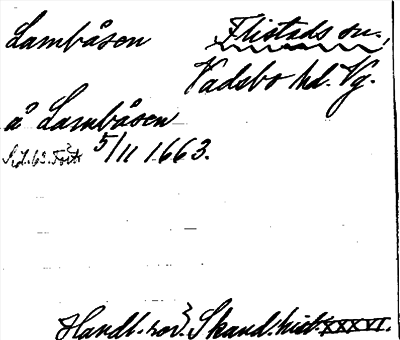 Lambåsen Flistads sn.,
Vadsbo hd. Vg.
å Lambåsen
5/11 1663.
Handl. rör. Skand. hist. XXXVI.